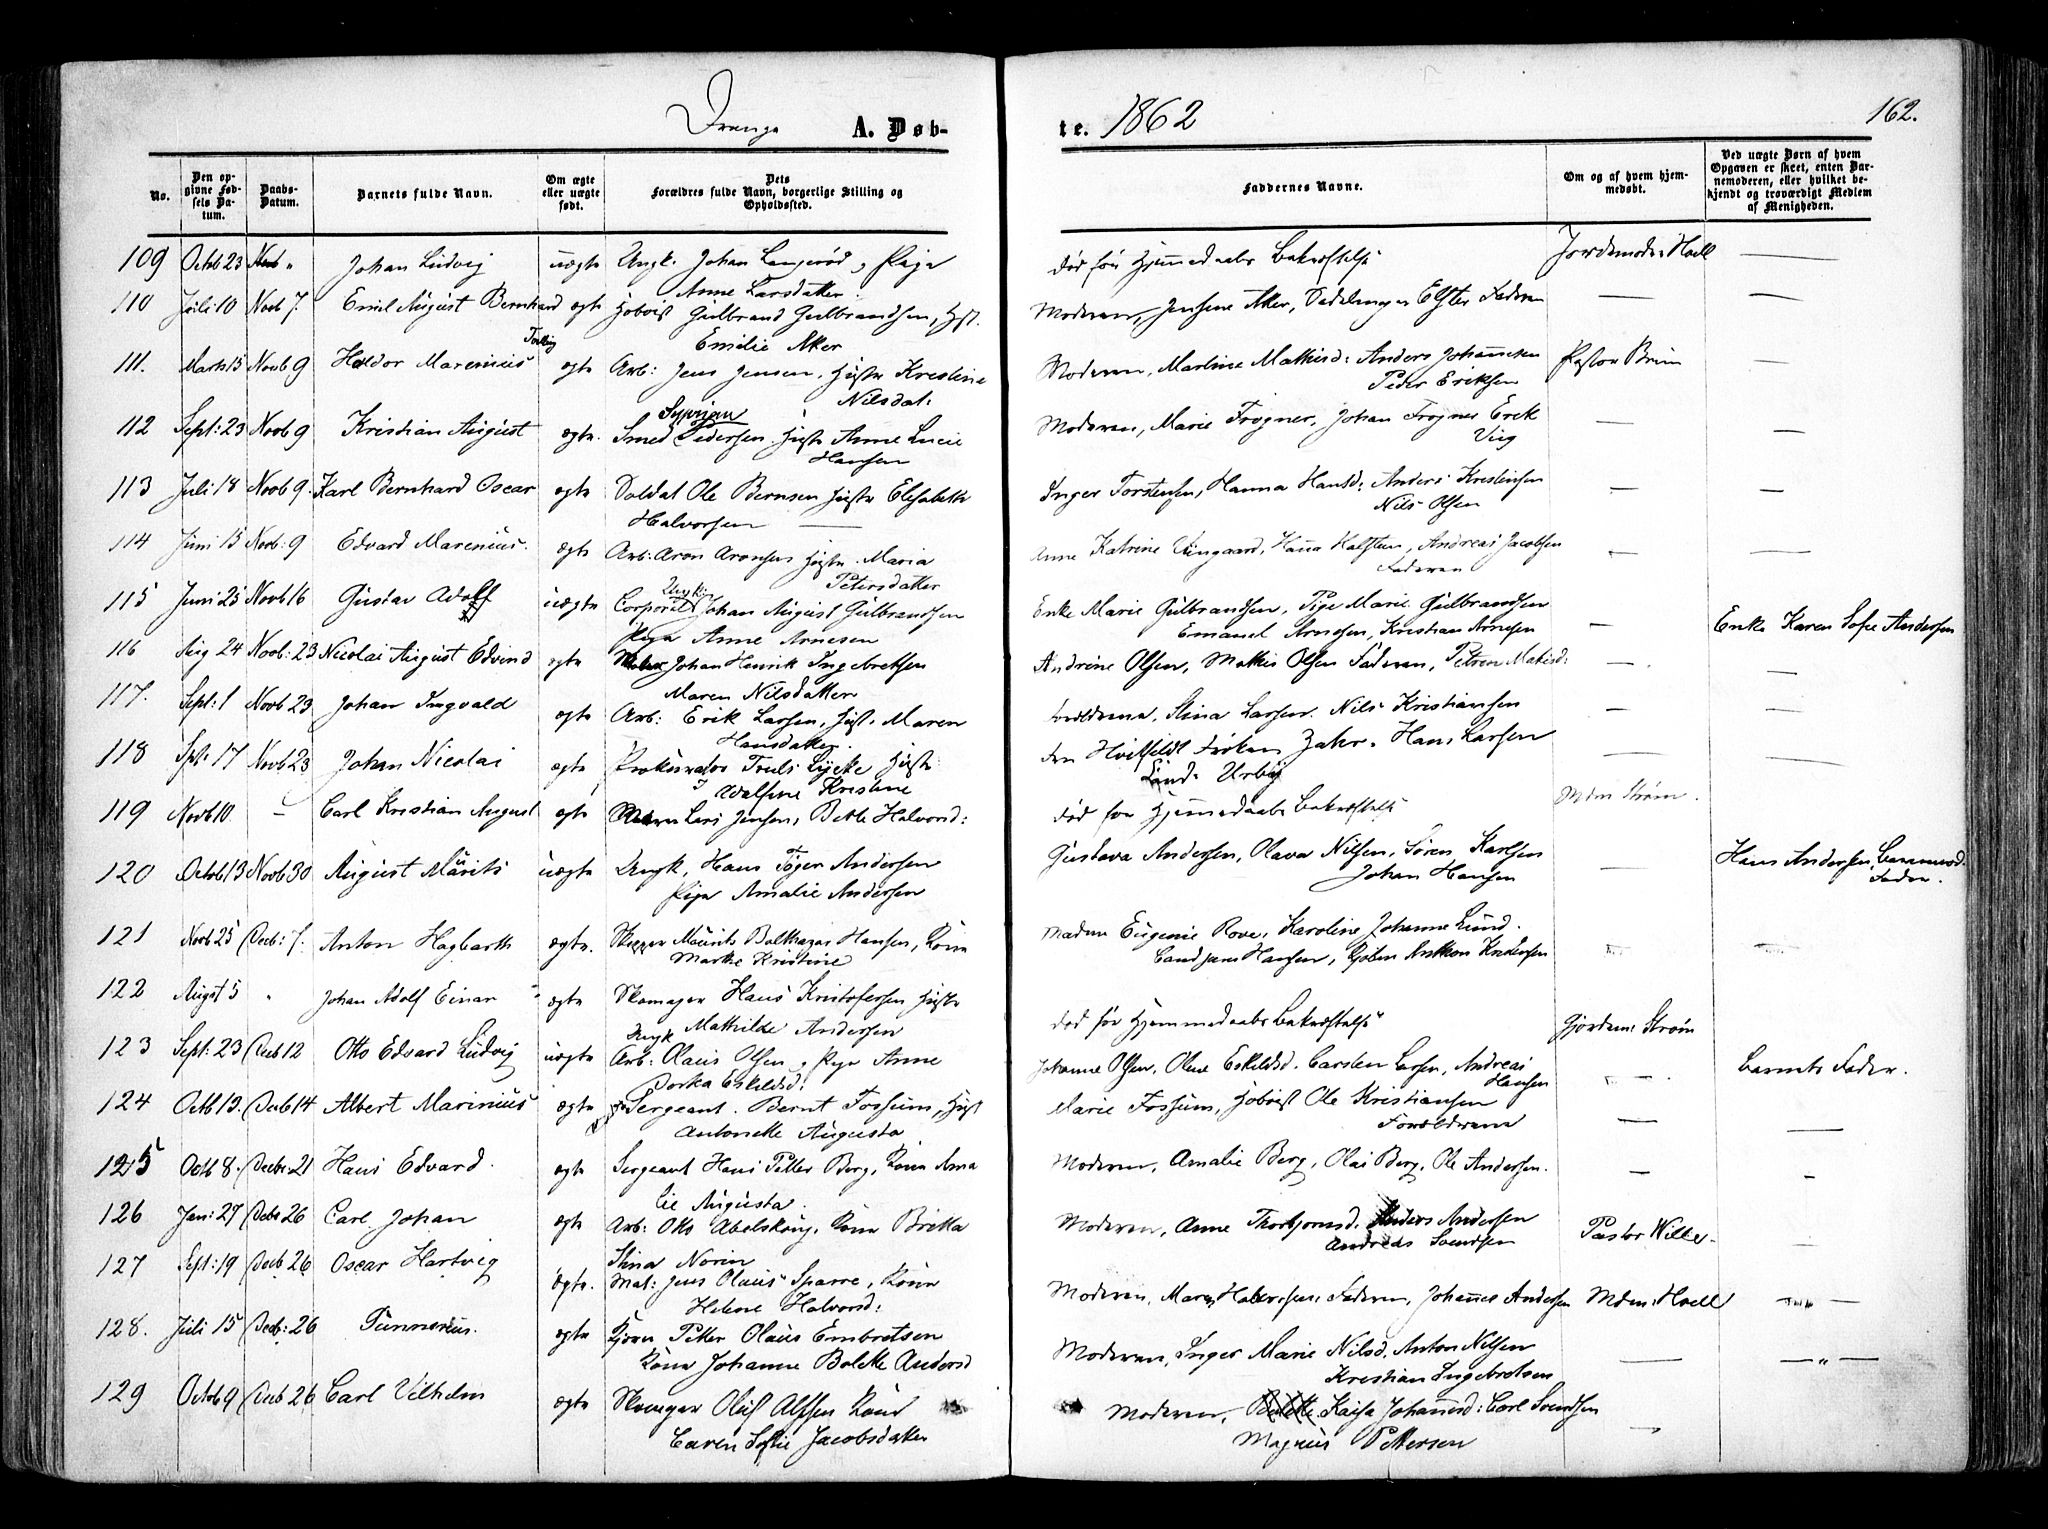 Drenge A. Døb-
te. 1862
162.
No.
Den op-
givne Fød-
sels Da-
tum.
Daabs-
Datum.
Barnets fulde Navn.
Om ægte
eller uægte
født.
Dets
Forældres fulde Navn, borgerlige Stilling og
Opholdssted.
Faddernes Navne.
Om og af hvem hjem-
medøbt.
Ved uægte Børn af hvem
Opgaven er skeet, enten Bar-
nemoderen, eller hvilket be-
kjendt og troværdigt Medlem
af Menigheden.
109 Octob 23 Novb " Johan Ludvig uægte Ungk. Johan Langerød, Pige død før Hjemmedaabs Bekræftelse Jordemoder Hoell —
Anne Larsdatter
110 Juli 10 Novb 7. Emil August Bernhard ægte Hoboist Gulbrand Gulbrandsen, Hust. Moderen, Jensine Aker, Faderen — —
Emilie Aker
111. Marts 15 Novb 9 Haldor Marenius ægte Arb: Jens Jensen, Hustr Kristine Moderen, Martine Mathisd: Anders Johannesen Pastor Bruun —
Nilsdat: Peder Eriksen
112 Sept: 23 Novb 9 Kristian August ægte. Smed Pedersen, Hustr Anne Lucie Moderen, Marie Frogner, Johan Frogner Erik — —
Hansen
113 Juli 18 Novb 9. Karl Bernhard Oscar ægte Soldat Ole Bernsen Hustr Elisabeth Inger Torstensen, Hanna Hansd: Anders Kristensen — —
Halvorsen — Nils Olsen
114 Juni 15 Novb: 9 Edvard Marenius. ægte Arb: Aron Aronsen Hustr. Maria Anne Katrine Vingaard, Hana Halsten, Andreas Jacobsen — —
Petersdatter Faderen
115 Juni 25 Novb 16 Gustav Adolf uægte Corporal Ungk: Johan August Gulbrandsen Enke Marie Gulbrandsen, Pige Marie Gulbrandsen — Enke Karen Sofie Andersen
Pige Anne Arnesen Emanuel Arnesen, Kristian Arnesen
116 Aug 24 Novb: 23 Nicolai August Edvind ægte Johan Henrik Ingebretsen Andrine Olsen, Mathis Olsen Faderen, Petren Mathisd: — —
Maren Nilsdatter
117. Sept: 1 Novb 23 Johan Ingvald ægte Arb: Erik Larsen, Hust. Maren Forældrene, Stina Larsen. Nils Kristiansen — —
Hansdatter.
118 Spt. 17 Novb 23 Johan Nicolai ægte Prokurator Truls Lycke Hustr Fru Hvitfeldt Frøken Hans Larsen — —
Adolfine Kristine
119 Novb 10 — Carl Kristian August ægte Lars Jensen, Berthe Halvorsd: død før Hjemmedaabs Bekræftelse Mdm Strøm.
120 Octob 13 Novb 30 August Mauritz uægte Ungk, Hans Andersen Gustava Andersen, Olava Nilsen, Søren Karlsen — Hans Andersen, Barnmod.
Pige Amalie Andersen Johan Hansen Fader.
121 Novb 25 Decb: 7. Anton Hagbarth ægte. Skipper Maurits Balthazar Hansen, Kone Madm Eugenie Rove, Karoline Johanne Lund.
Marthe Kristine
122 August 5 " Johan Adolf Einar ægte Skomager Hans Kristofersen Hustr død før Hjemmedaabs Bekræftelse Gjordem: Strøm
Mathilde Andersen
123 Sept: 23 Decb 12 Otto Edvard Ludvig uægte Ungk Arb: Olaus Olsen, Pige Anne Johanne Olsen, Oline Eskildsd. Carsten Larsen, Andreas — Barnets Fader.
Dorthea Eskildsd: Hansen
124 Octb 13. Decb 14 Albert Marinius ægte Sergeant. Bernt Fossum, Hust Marie Fossum, Hoboist Ole Kristiansen — —
Antonette Augusta Forældrene
125 Octb 8. Decbr. 21 Hans Edvard. ægte Sergeant Hans Petter Berg, Kone Ama Moderen, Amalie Berg, Olai Berg, Ole Andersen. — -
lie Augusta
126 Jan: 27 Decbr 26 Carl Johan ægte Arb: Otto Kone Brita Moderen, Anne Thorbjørnsd. Anders Andersen Pastor Wille —
Stina Norin Andreas Svendsen
127 Sept: 19 Decb 26 Oscar Hartvig ægte. Mat: Jens Olaus Sparre, Kone Moderen, Maren Halvorsen, Faderen, Johannes Andersen Mdm: Hoell — " —
Helene Halvorsd:
128. Juli 15 Decb: 26 Gunnerius. ægte Petter Olaus Embretsen Moderen, Inger Marie Nilsd. Anton Nilsen — — " —
Kone Johanne Bolette Andersd Kristian Ingebretsen
129 Octob 9 Decb 26 Carl Vilhelm ægte Skomager Oluf Alfsen Kone Moderen, Kaisa Johannesd: Carl Svendsen —
Caren Sofie Jacobsdatter Magnus Pettersen